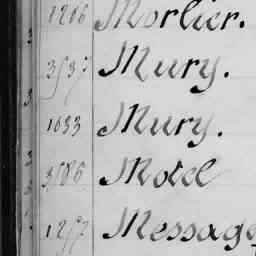 1206 Morlier.
3537 Mury.
1033 Mury.
3586 Motel
1257 Message